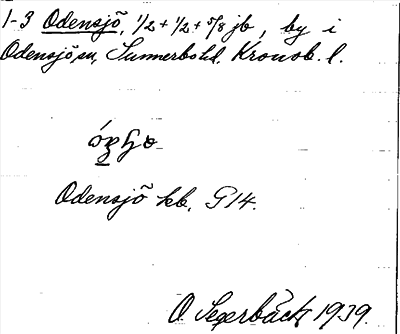 1-3 Odensjö, 1/2 + 1/2 + 5/8 jb, by i
Odensjö sn, Sunnerbo hd, Kronob. l.
Odensjö kb. G14.
O Segerbäck 1939.